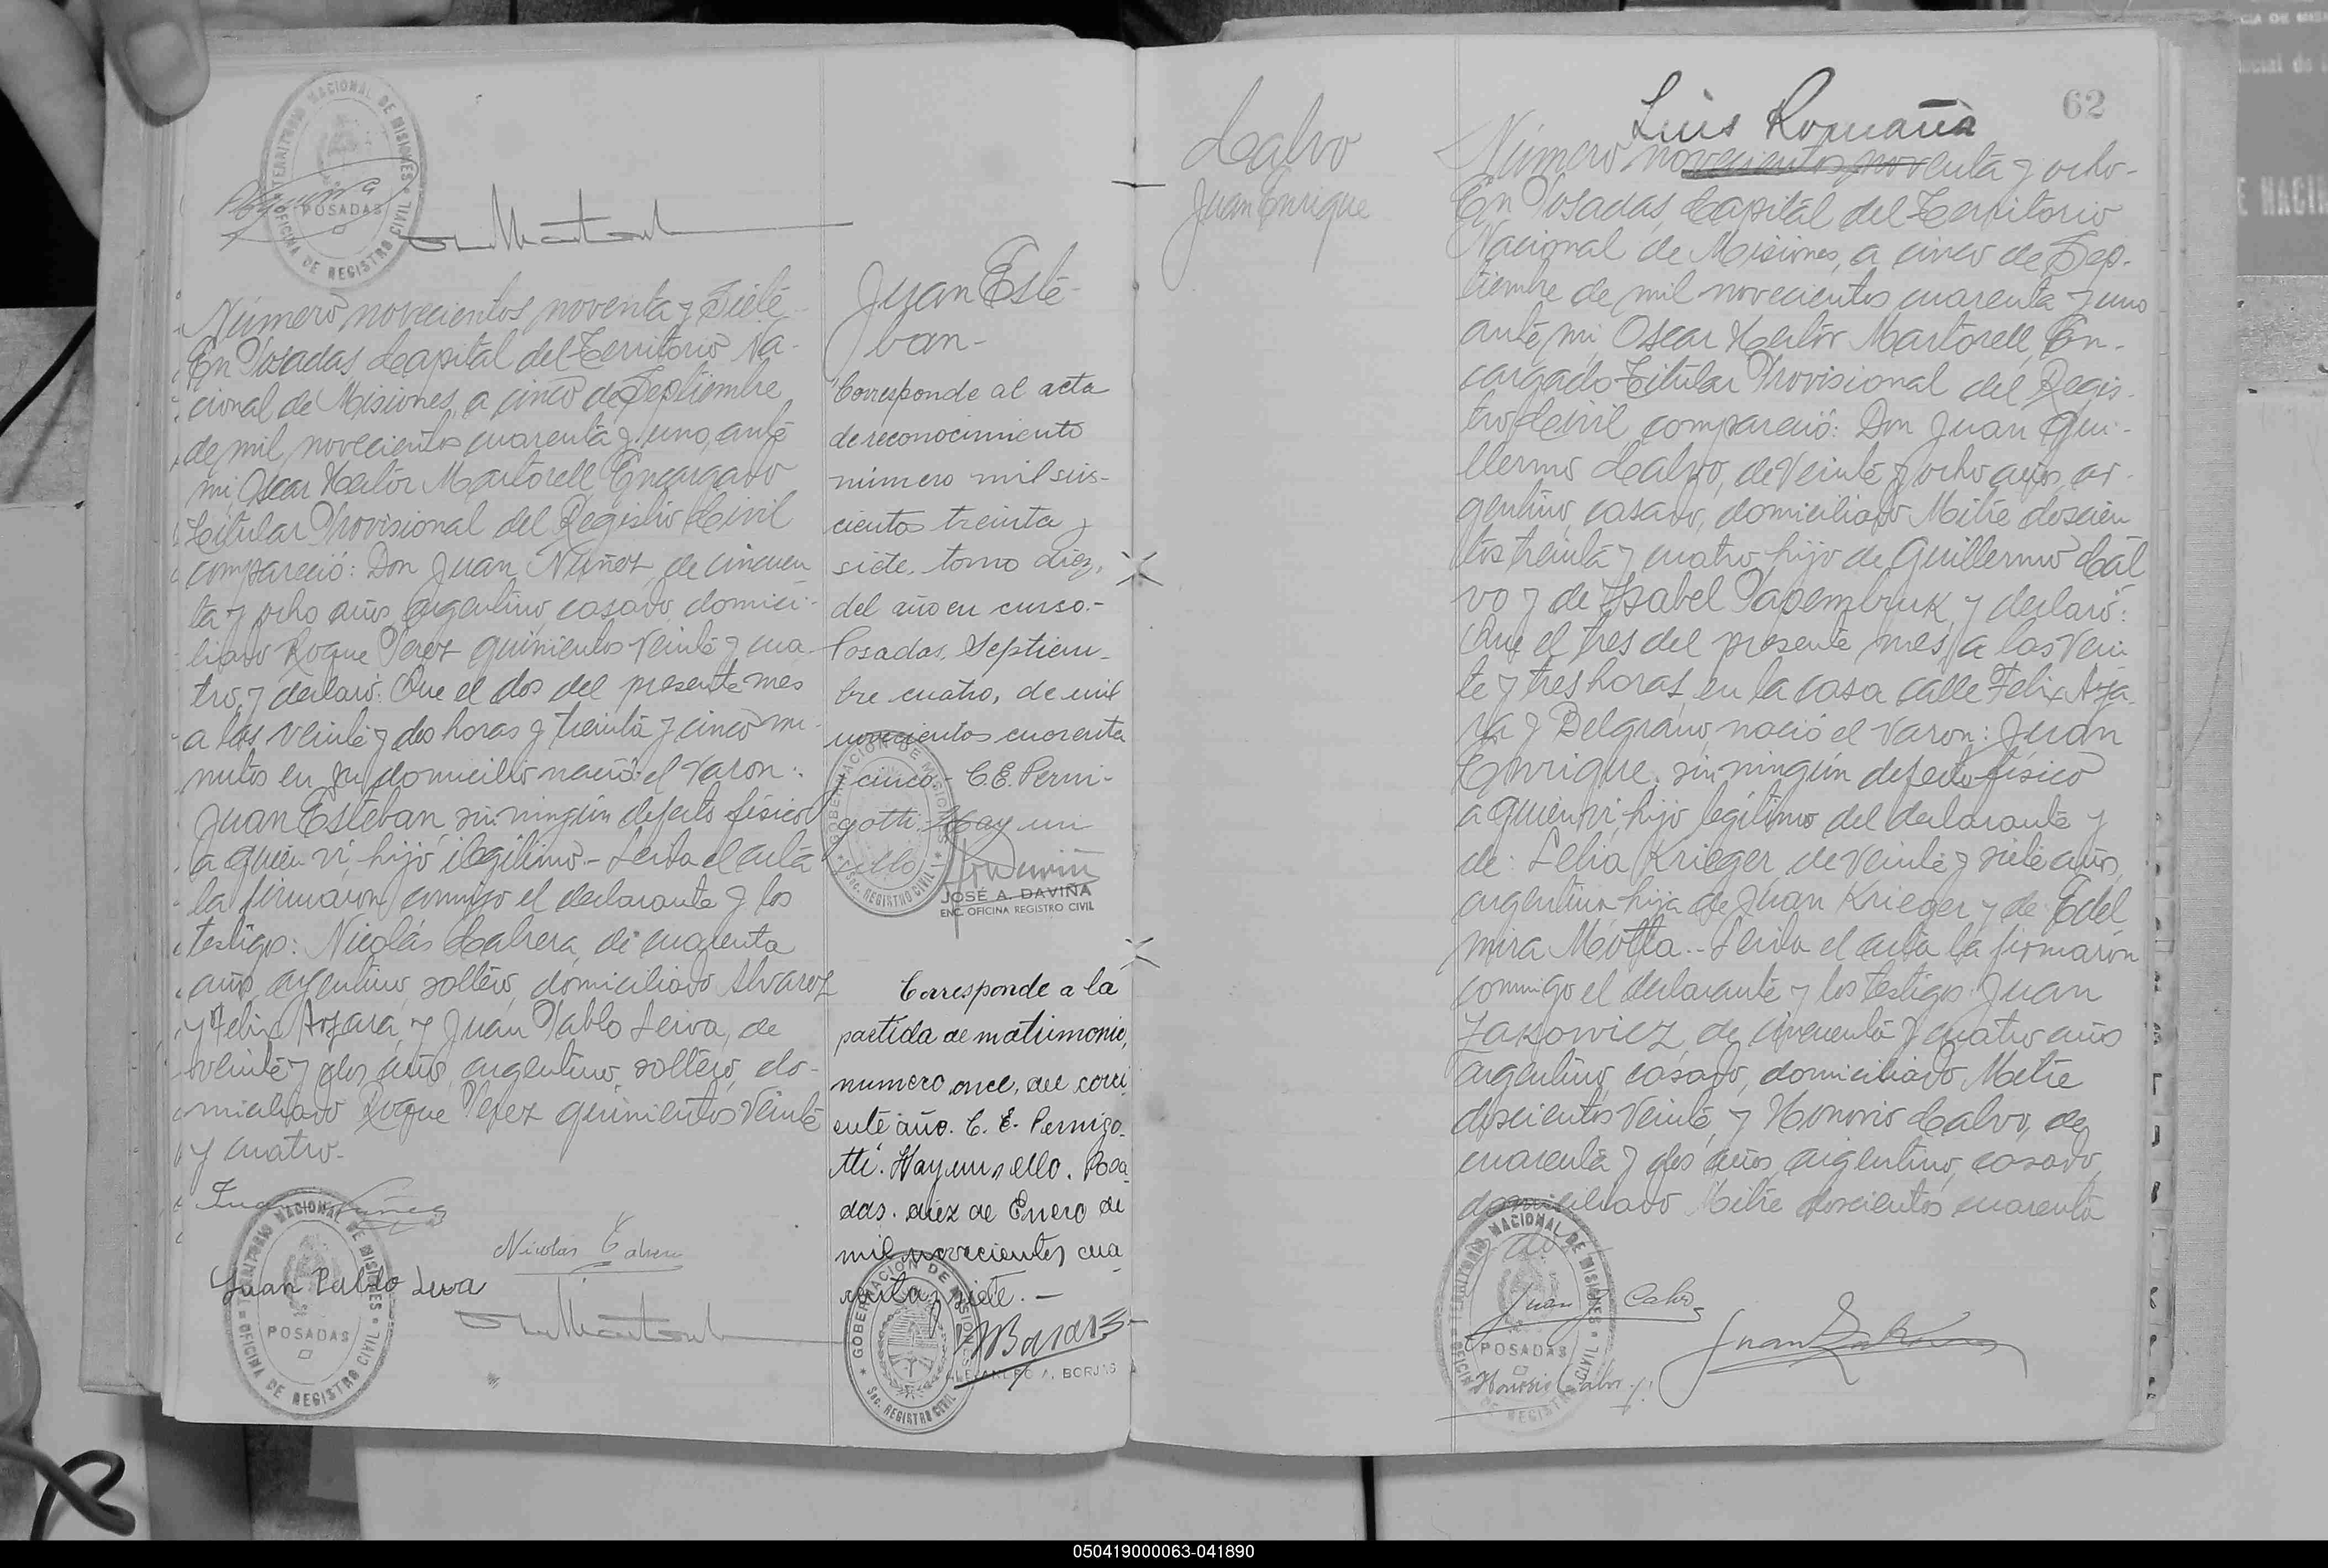 TERRITORIO NACIONAL DE MISIONES
OFICINA DE REGISTRO CIVIL
POSADAS
Número novecientos noventa y siete
En Posadas Capital del Territorio Na-
cional de Misiones, a cinco de Septiembre
de mil novecientos cuarenta y uno, ante
mi Oscar Hector Martorell Encargado
Titular Provisional del Registro Civil
compareció: Don Juan Nuñez, de cincuen
ta y ocho años, argentino, casado, domici-
liado Roque Perez quinientos veinte y cua-
tro, y declaró: Que el dos del presente mes
a las veinte y dos horas y treinta y cinco mi-
nutos en su domicilio nació el varon:
Juan Esteban, sin ningún defecto físico
a quien vi, hijo ilegítimo.- Leida el acta
la firmaron conmigo el declarante y los
testigos: Nicolás Cabrera, de cuarenta
años, argentino, soltero, domiciliado Alvarez
y Felix Azara, y Juan Pablo Leiva, de
veinte y dos años, argentino, soltero, do-
miciliado Roque Perez quinientos veinte
y cuatro.-
Juan Nuñez
Nicolás Cabrera
Juan Pablo Leiva
TERRITORIO NACIONAL DE MISIONES
OFICINA DE REGISTRO CIVIL
POSADAS
Juan Este-
ban-
Corresponde al acta
de reconocimiento
número mil seis-
cientos treinta y
siete, tomo diez,
del año en curso.-
Posadas, Septiem-
bre cuatro, de mil
novecientos cuarenta
y cinco.- C.E. Perni-
gotti. Hay un
sello.-
GOBERNACION DE MISIONES
Sec. REGISTRO CIVIL
JOSÉ A. DAVIÑA
ENC. OFICINA REGISTRO CIVIL
Corresponde a la
partida de matrimonio,
numero once, del corri
ente año. C. E. Pernigo-
tti. Hay un sello. Posa
das. diez de Enero de
mil novecientos cua
renta y siete.-
GOBERNACION DE MISIONES
Sec. REGISTRO CIVIL
ALEJANDRO A. BORJAS
62
Calvo
Juan Enrique
Luis Romaña
Número novecientos noventa y ocho-
En Posadas, Capital del Territorio
Nacional de Misiones, a cinco de Sep-
tiembre de mil novecientos cuarenta y uno
ante mi Oscar Hector Martorell, En-
cargado Titular Provisional del Regis-
tro Civil compareció: Don Juan Gui-
llermo Calvo, de veinte y ocho años, ar-
gentino, casado, domiciliado Mitre doscien
tos treinta y cuatro, hijo de Guillermo Cal
vo y de Isabel Papembruk, y declaró:
Que el tres del presente mes, a las vein
te y tres horas, en la casa calle Felix Aza-
ra y Belgrano, nació el varon: Juan
Enrique, sin ningún defecto físico
a quien vi, hijo legítimo del declarante y
de: Lelia Krieger, de veinte y siete años,
argentina, hija de Juan Krieger y de Edel
mira Motta.- Leida el acta la firmaron
conmigo el declarante y los testigos: Juan
Zakowicz, de cincuenta y cuatro años
argentino, casado, domiciliado Mitre
doscientos veinte, y Honorio Calvo, de
cuarenta y dos años, argentino, casado,
domiciliado Mitre doscientos cuarenta
Juan G. Calvo
Honorio Calvo
TERRITORIO NACIONAL DE MISIONES
OFICINA DE REGISTRO CIVIL
POSADAS
050419000063-041890